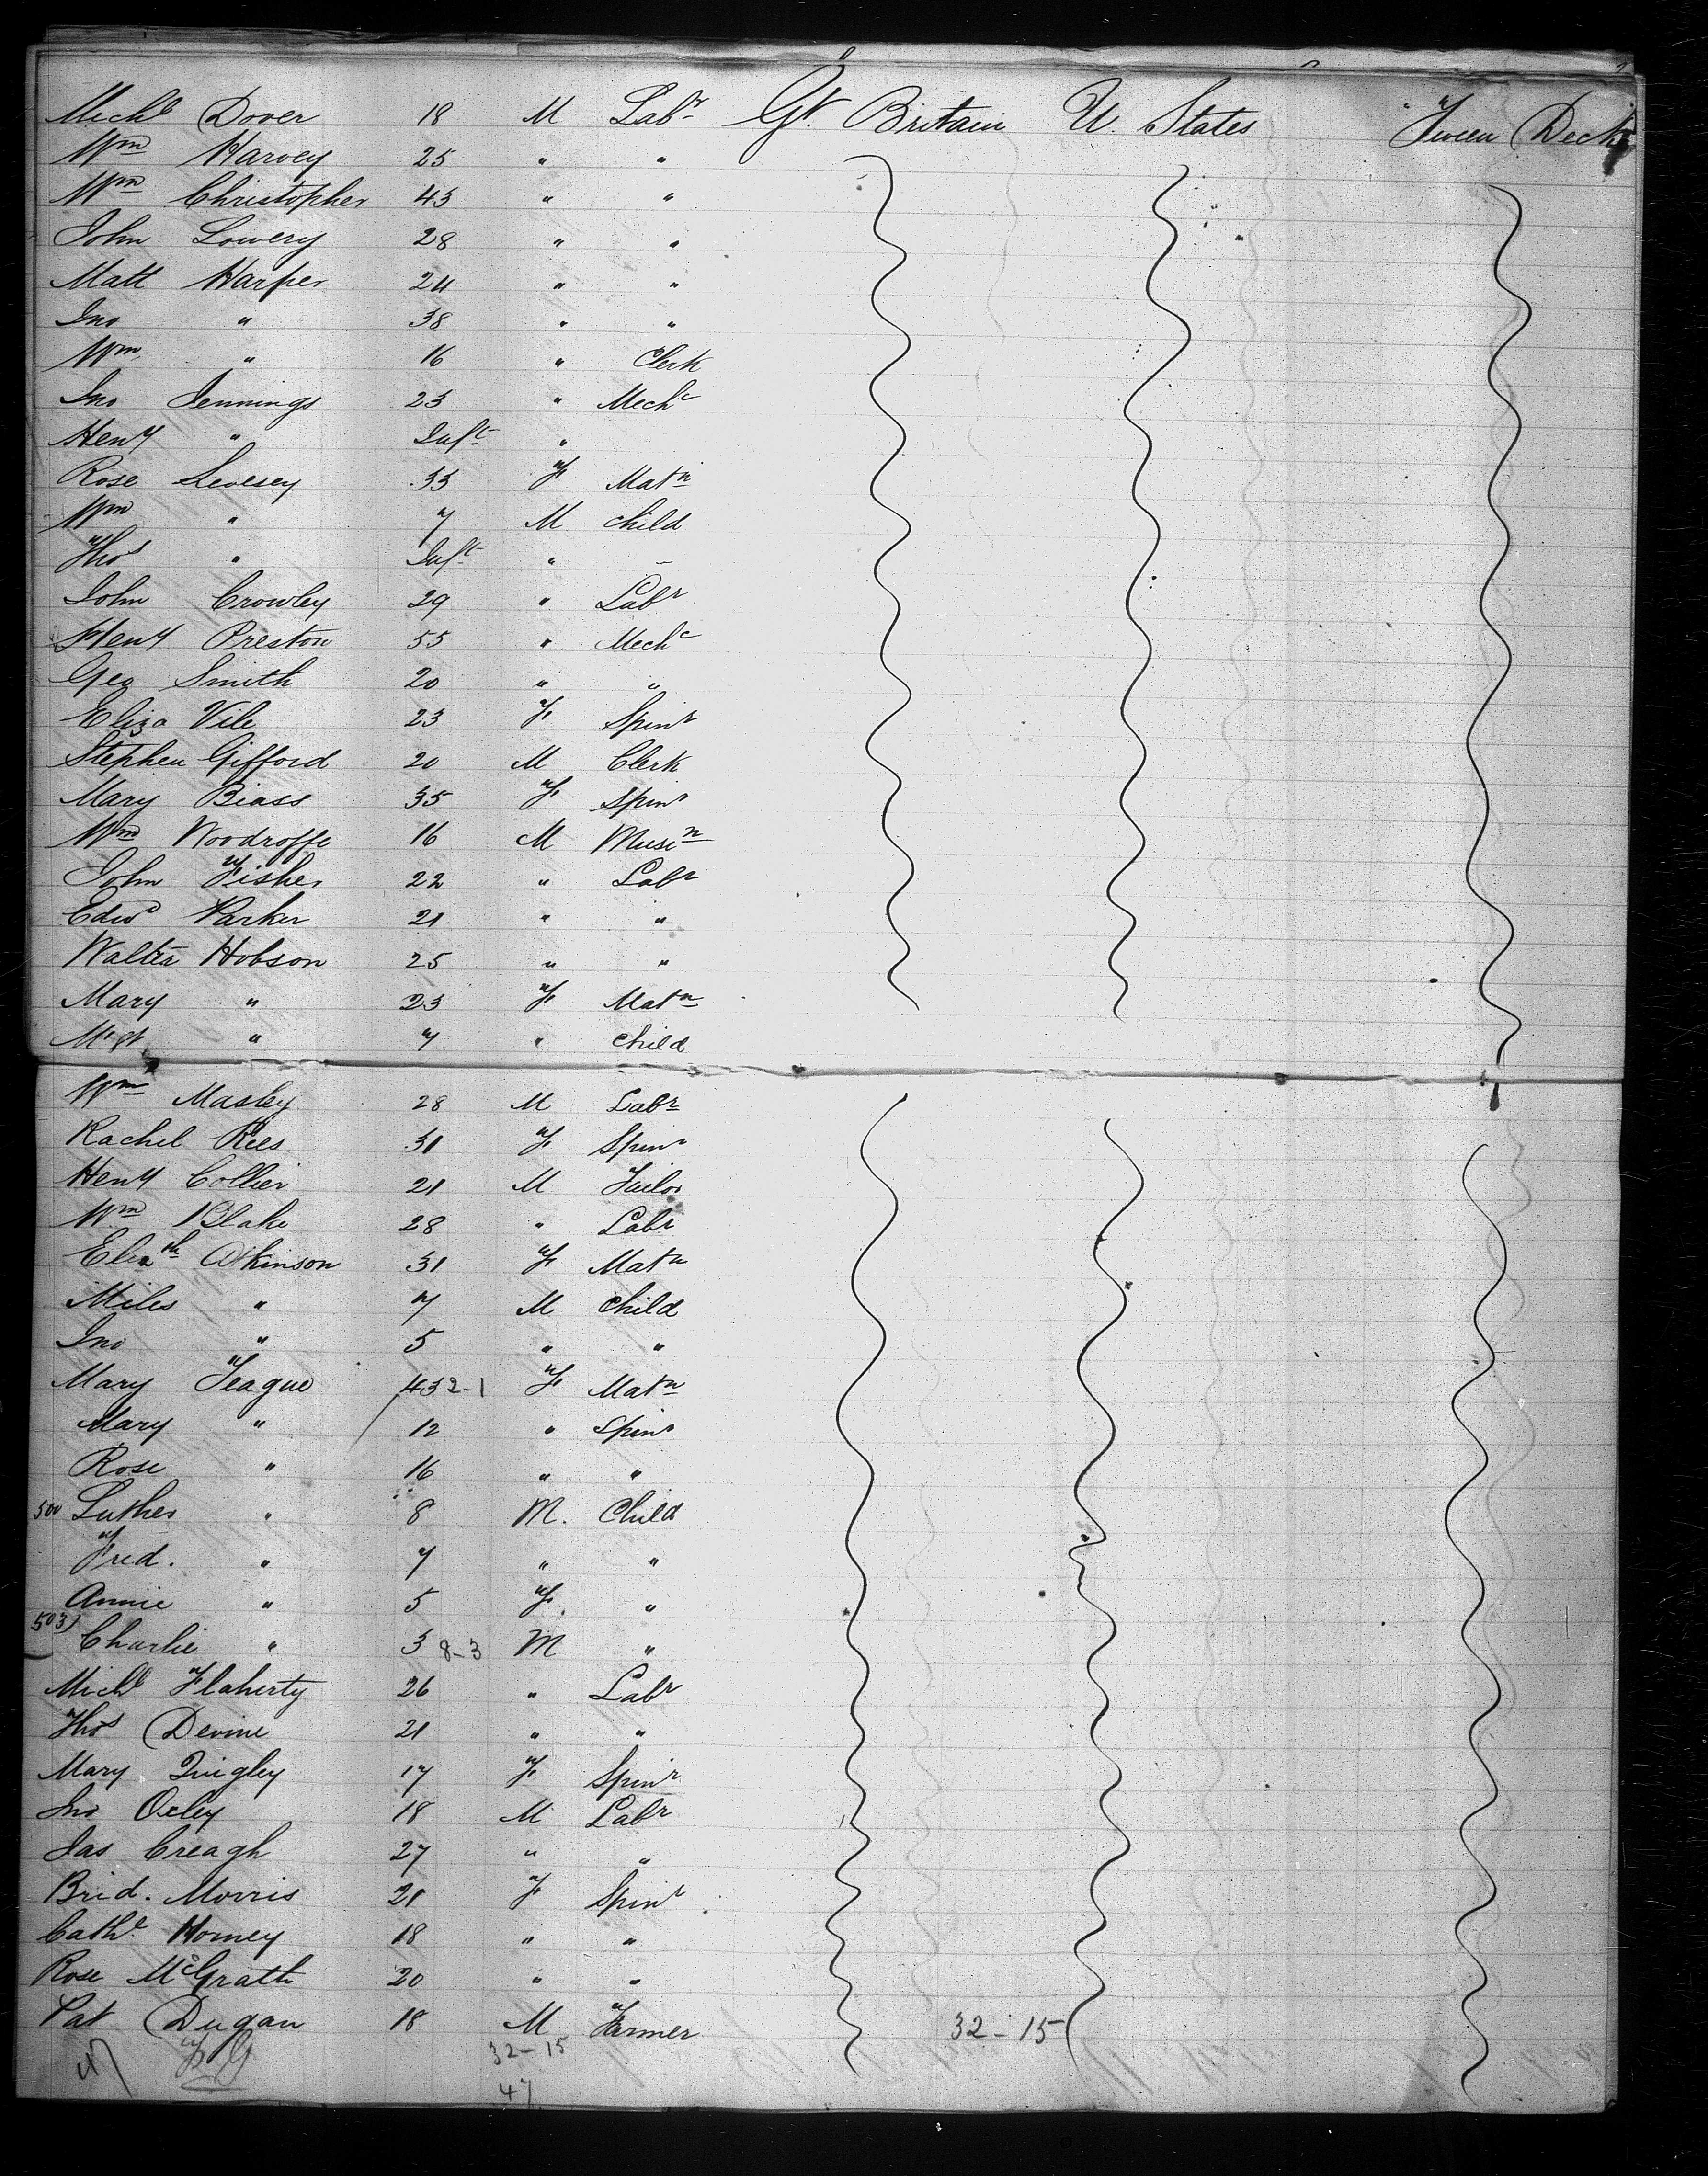 Michl Dover 18 M Labr Gt. Britain U. States Tween Decks
Wm Harvey 25 " "
Wm Christopher 43 " "
John Lowery 28 " "
Matt Harper 24 " "
Jno " 38 " "
Wm " 16 " Clerk
Jno Jennings 23 " Mechc
Heny " Inft "
Rose Levesey 33 F Matn
Wm " 7 M child
Thos " Inft "
John Crowley 29 " Labr
Heny Preston 55 " Mechc
Geo Smith 20 " "
Eliza Vile 23 F Spinr
Stephen Gifford 20 M Clerk
Mary Biass 35 F Spinr
Wm Woodroffe 16 M Musin
John Fisher 22 " Labr
Edwd Parker 21 " "
Walter Hobson 25 " "
Mary " 23 F Matn
Mgt " 7 " child
Wm Masley 28 M Labr
Rachel Rees 31 F Spinr
Heny Collier 21 M Tailor
Wm Blake 28 " Labr
Elizth Atkinson 31 F Matn
Miles " 7 M Child
Jno " 5 " "
Mary Teague 43 2-1 F Matn
Mary " 12 " Spinr
Rose " 16 " "
500 Luther " 8 M. Child
Fred. " 7 " "
Annie " 5 F. "
503) Charlie " 3 8-3 M "
Michl Flaherty 26 " Labr
Thos Devine 21 " "
Mary Quigley 17 F Spinr
Jno Oxley 18 M Labr
Jas Creagh 27 " "
Brid. Morris 21 F Spinr
Cathe Horney 18 " "
Rose McGrath 20 " "
Pat Dugan 18 M Farmer 32-15
47 32-15
47